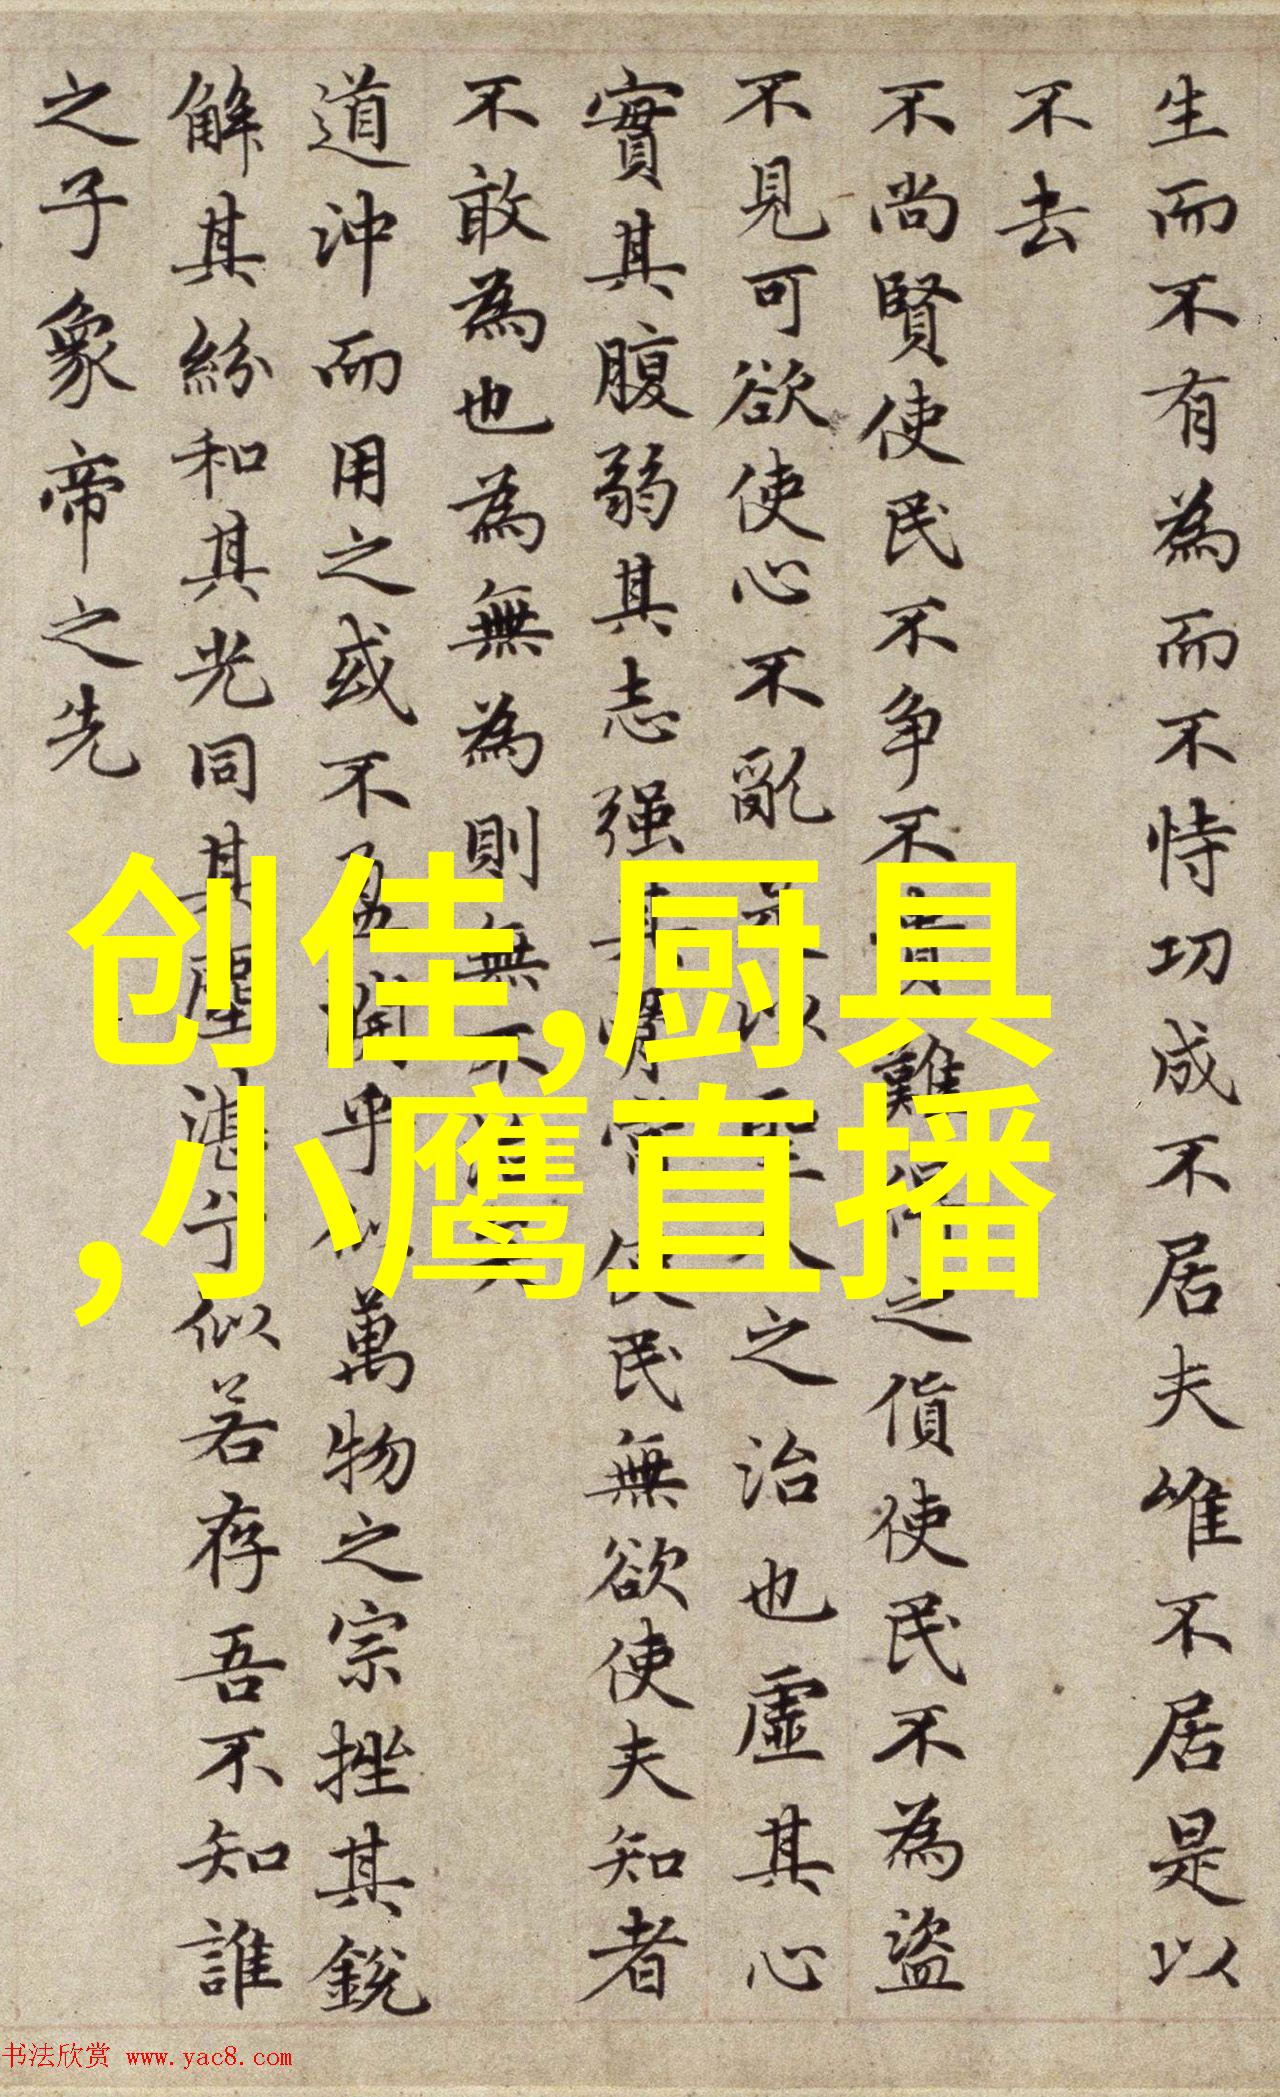 生而不有為而不恃功成不居夫唯不居是以
不去
不尚賢使民不争不貴難得之貨使民不為盜
不見可欲使心不亂是以聖人之治也虛其心
實其腹弱其志强其骨常使民無欲使夫知者
不敢為也為無為則無不治矣
道沖而用之或不盈淵乎似萬物之宗挫其銳
解其紛和其光同其塵湛兮似若存吾不知誰
之子象帝之先
创佳,厨具
,小鹰直播
书法欣赏 www.yac8.com